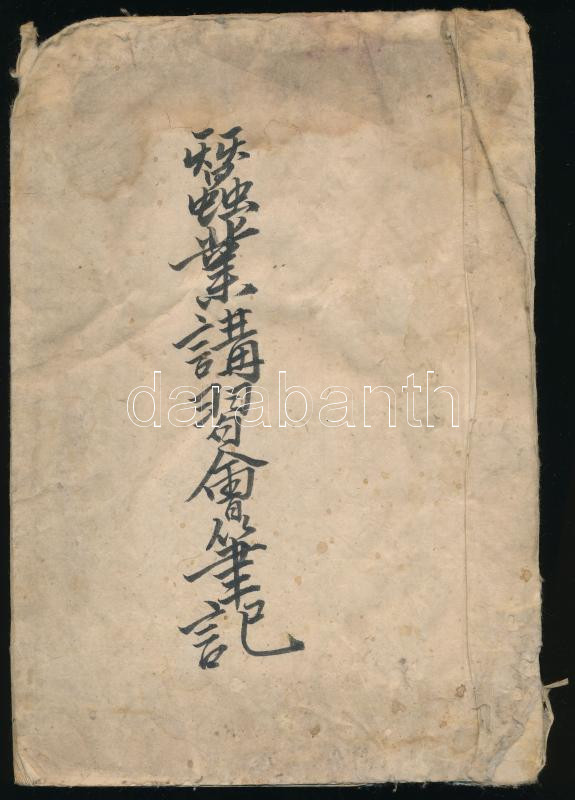 蠶業講習會筆記
darabanth